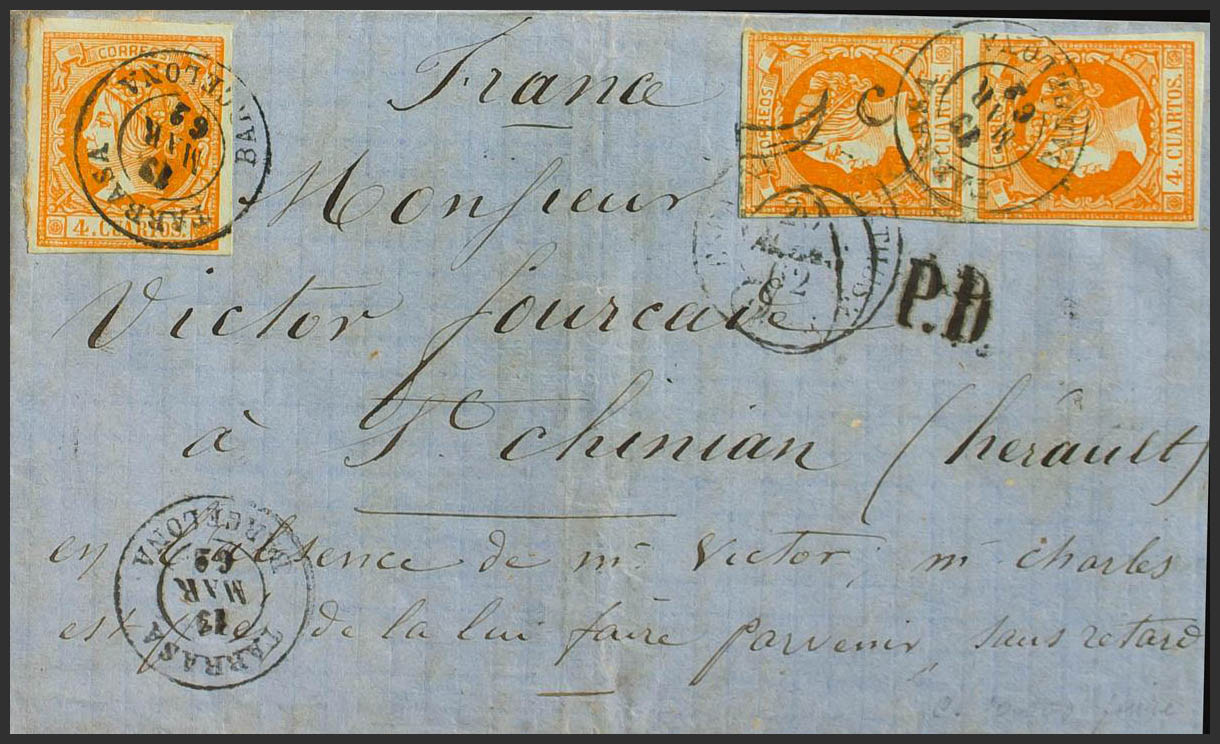 CORREOS
4. CUARTOS.
TARRASA BARCELONA
13 MAR 62
France
CORREOS
4. CUARTOS.
4. CUARTOS.
TARRASA BARCELONA
13 MAR 62
62
P.D.
Monsieur
Victor Fourcade
à St. chinian (hérault)
TARRASA BARCELONA
13 MAR 62
en l'absence de mr. Victor, mr. charles
est prié de la lui faire parvenir, sans retard